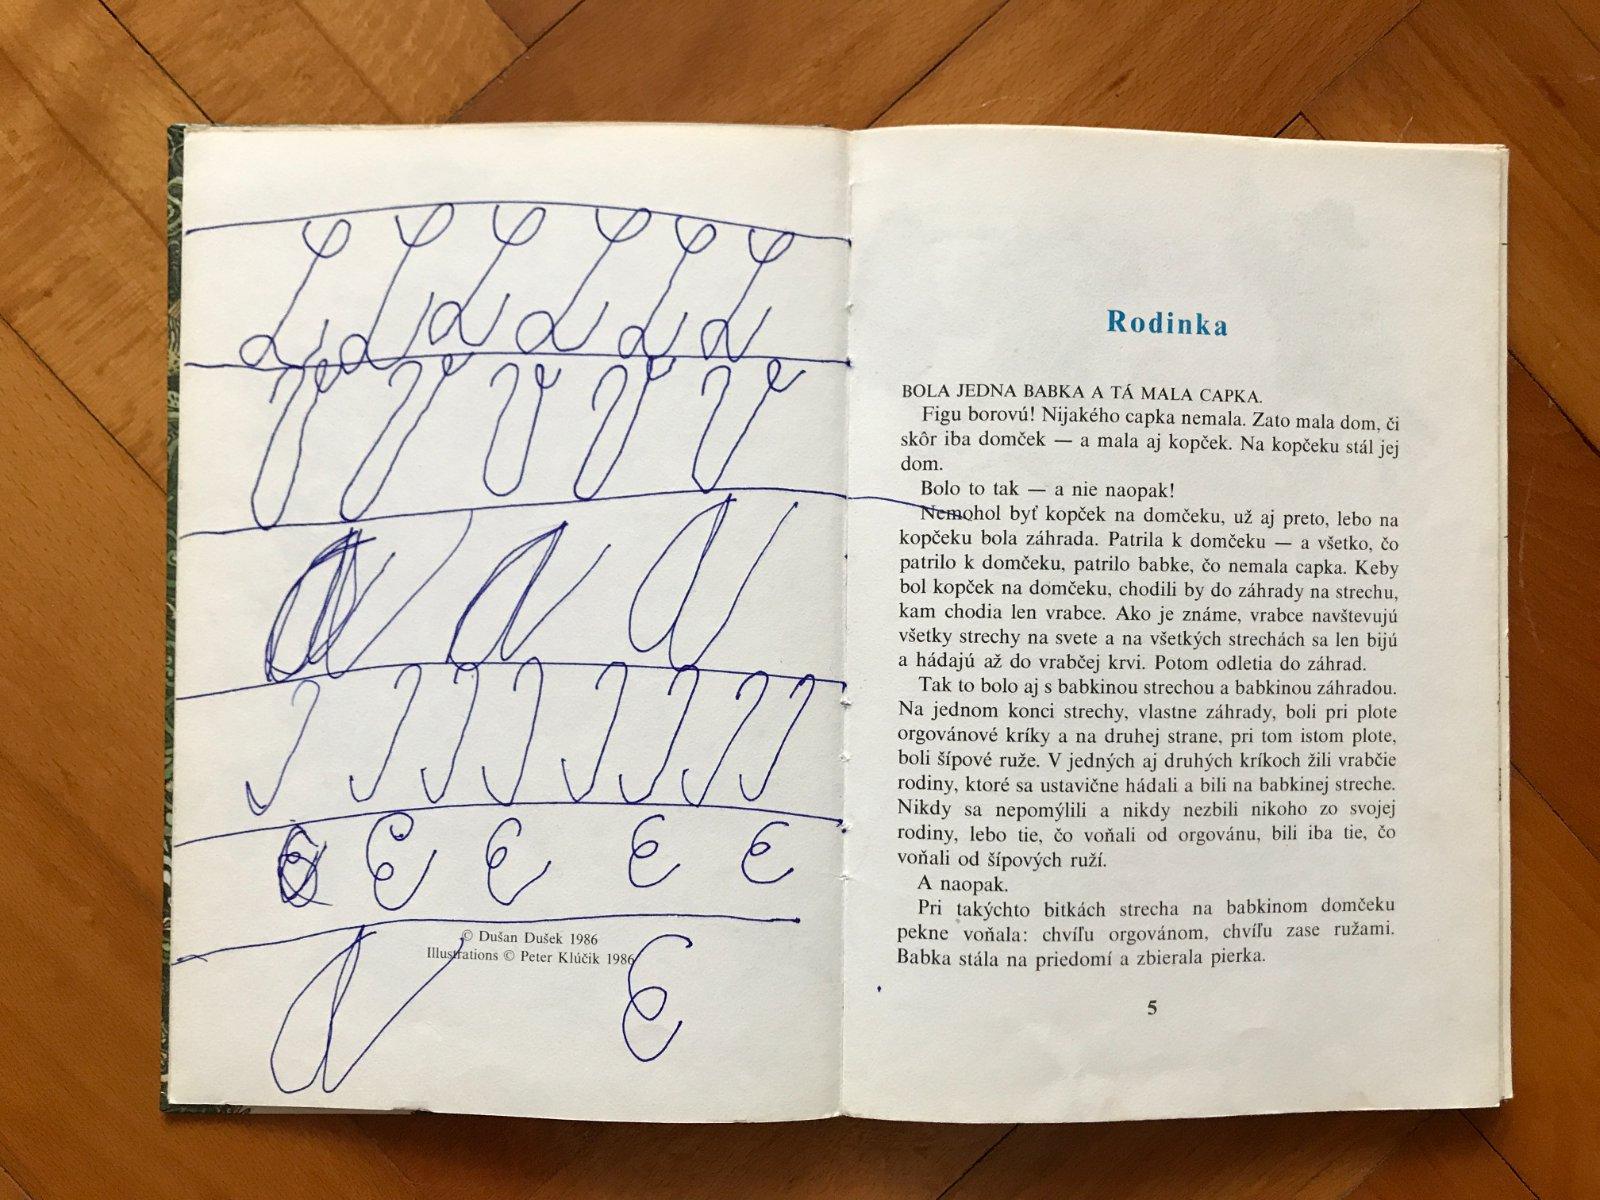 L L L L L L
V V V V V
A A A
J J J J J J J J
E E E E E
© Dušan Dušek 1986
Illustrations © Peter Klúčik 1986
A E
Rodinka
BOLA JEDNA BABKA A TÁ MALA CAPKA.
Figu borovú! Nijakého capka nemala. Zato mala dom, či
skôr iba domček — a mala aj kopček. Na kopčeku stál jej
dom.
Bolo to tak — a nie naopak!
Nemohol byť kopček na domčeku, už aj preto, lebo na
kopčeku bola záhrada. Patrila k domčeku — a všetko, čo
patrilo k domčeku, patrilo babke, čo nemala capka. Keby
bol kopček na domčeku, chodili by do záhrady na strechu,
kam chodia len vrabce. Ako je známe, vrabce navštevujú
všetky strechy na svete a na všetkých strechách sa len bijú
a hádajú až do vrabčej krvi. Potom odletia do záhrad.
Tak to bolo aj s babkinou strechou a babkinou záhradou.
Na jednom konci strechy, vlastne záhrady, boli pri plote
orgovánové kríky a na druhej strane, pri tom istom plote,
boli šípové ruže. V jedných aj druhých kríkoch žili vrabčie
rodiny, ktoré sa ustavične hádali a bili na babkinej streche.
Nikdy sa nepomýlili a nikdy nezbili nikoho zo svojej
rodiny, lebo tie, čo voňali od orgovánu, bili iba tie, čo
voňali od šípových ruží.
A naopak.
Pri takýchto bitkách strecha na babkinom domčeku
pekne voňala: chvíľu orgovánom, chvíľu zase ružami.
Babka stála na priedomí a zbierala pierka.
5